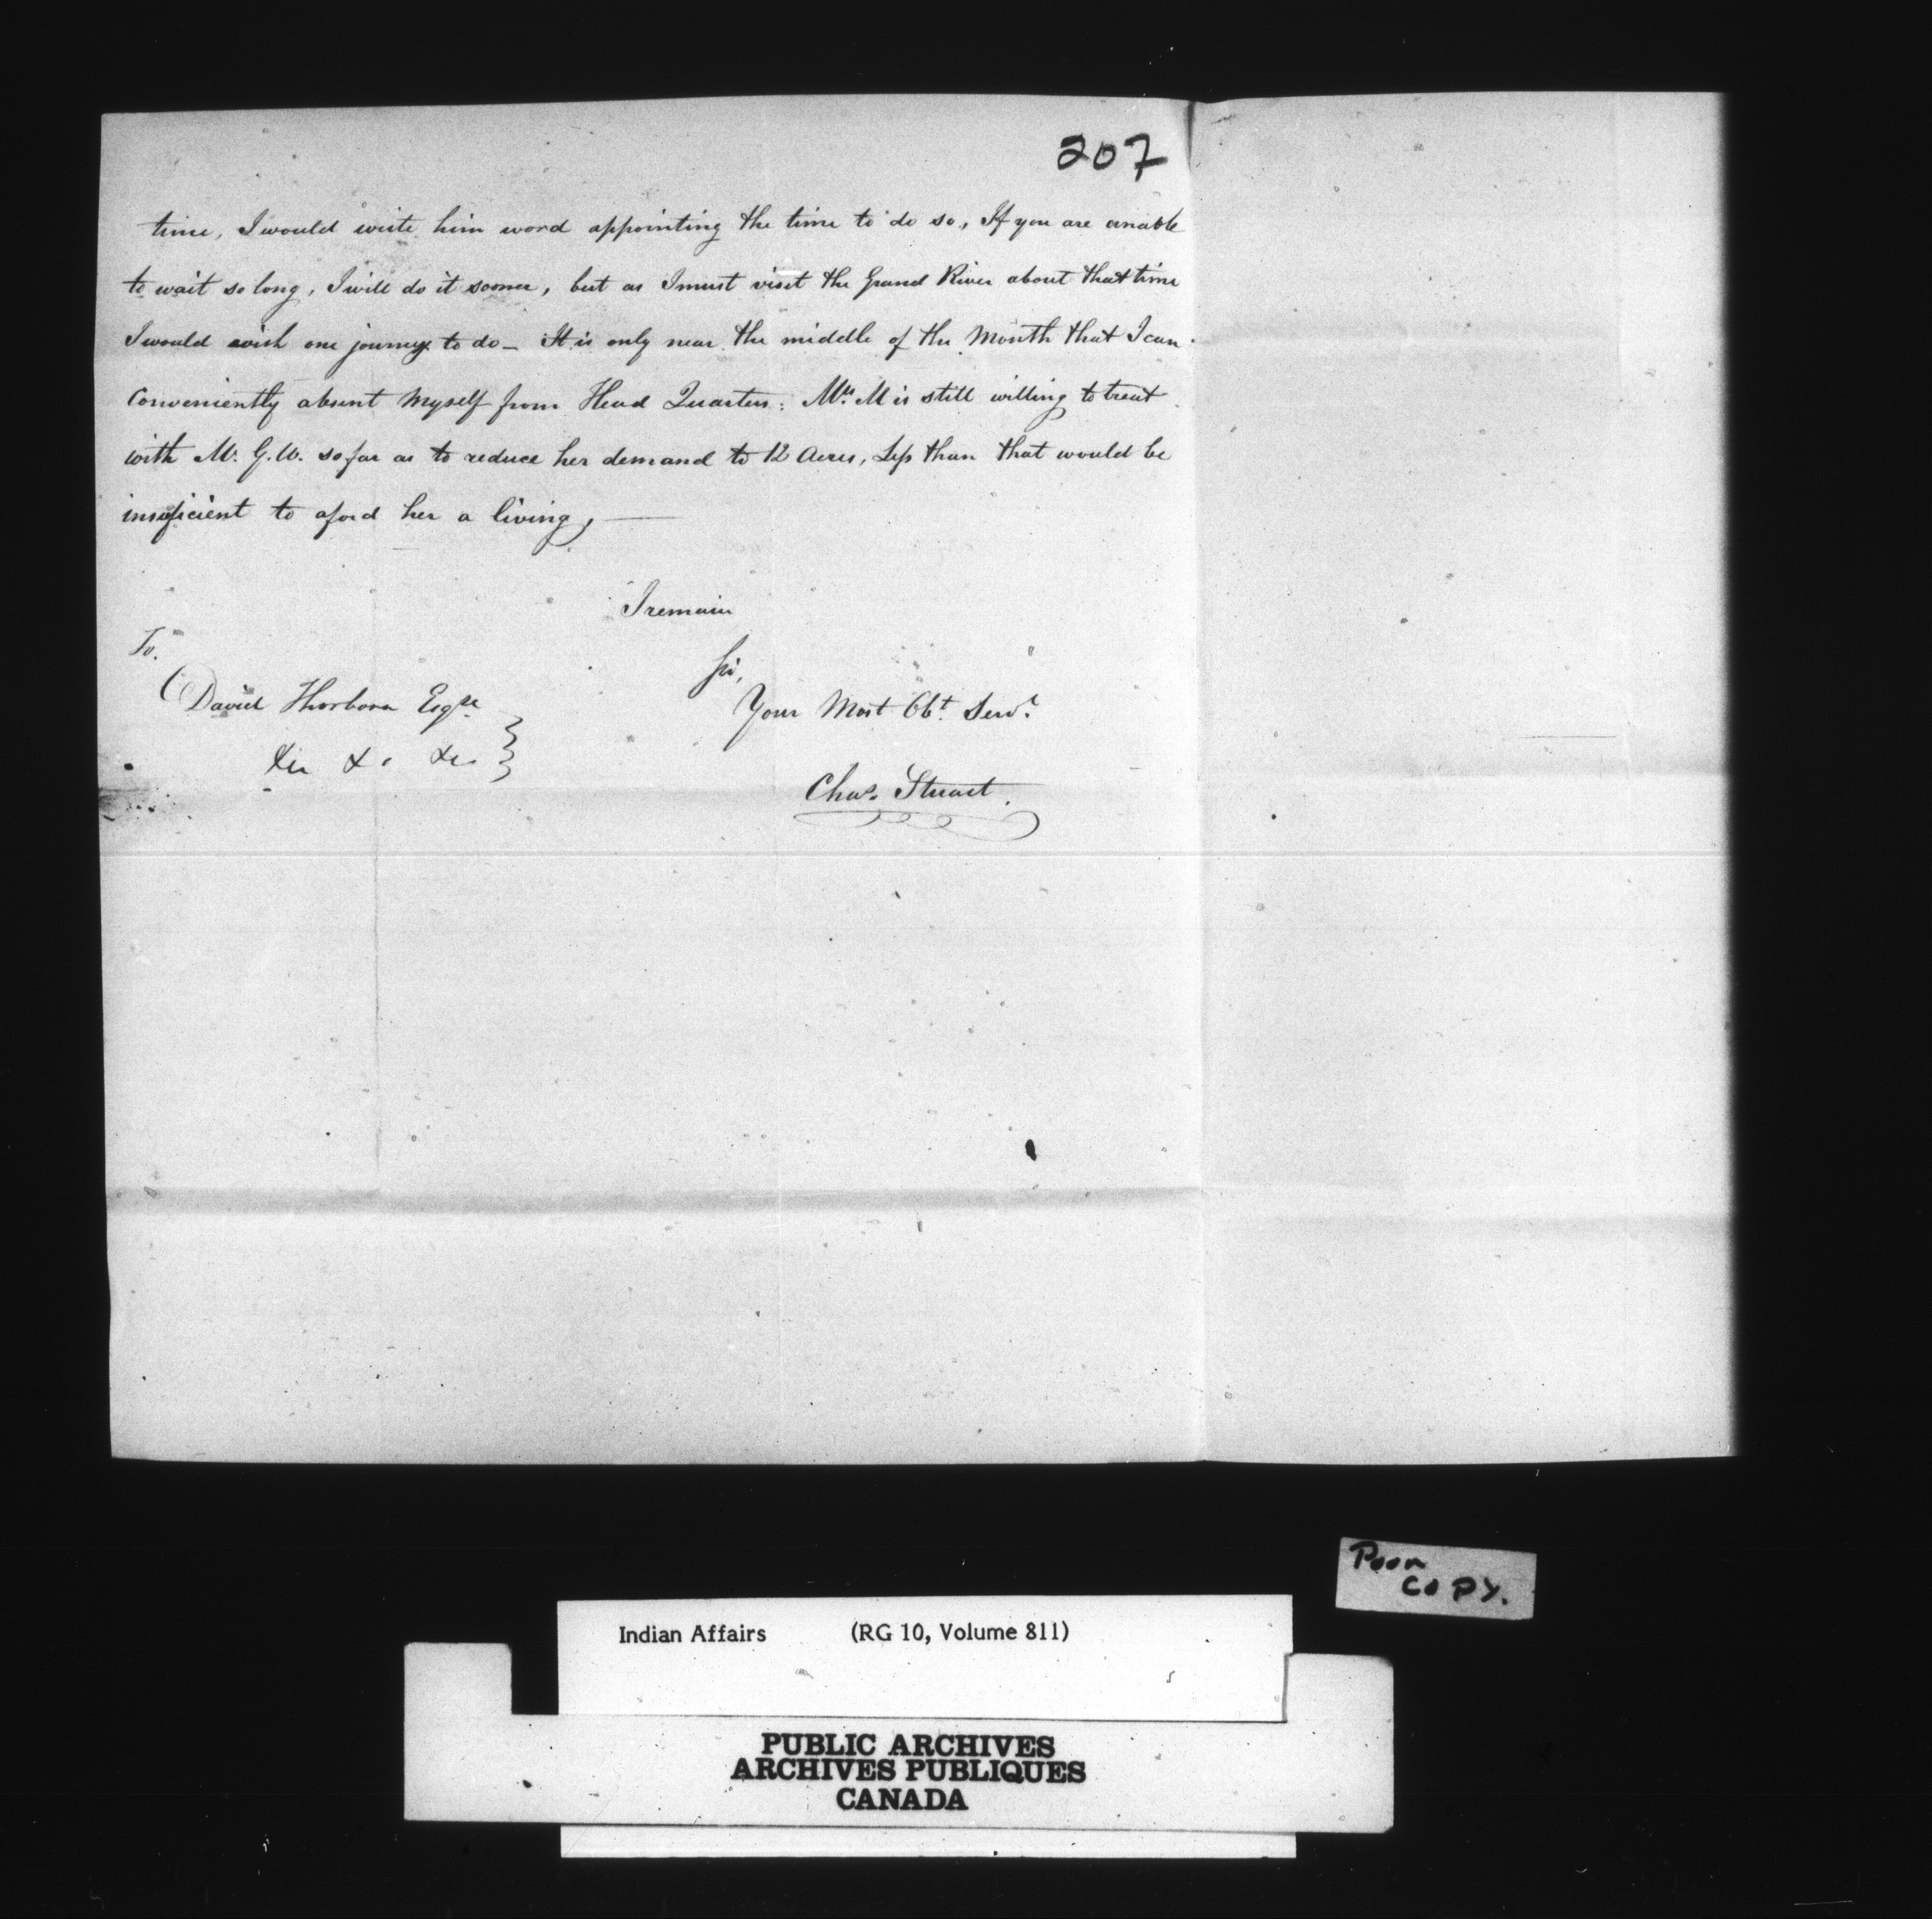 207
time, I would write him word appointing the time to do so, If you are unable
to wait so long, I will do it sooner, but as I must visit the Grand River about that time
I would wish one journey to do – It is only near the middle of the Month that I can
Conveniently absent Myself from Head Quarters: Mrs M is still willing to treat
with M. G. W. so far as to reduce her demand to 12 Acres, Less than that would be
insuficient to aford her a living, —
I remain
To.
Sir,
David Thorborn Esqre
Your Most Obt. Servt.
&c &c &c
Chas. Stuart.
Poor
COPY.
Indian Affairs (RG 10, Volume 811)
PUBLIC ARCHIVES
ARCHIVES PUBLIQUES
CANADA